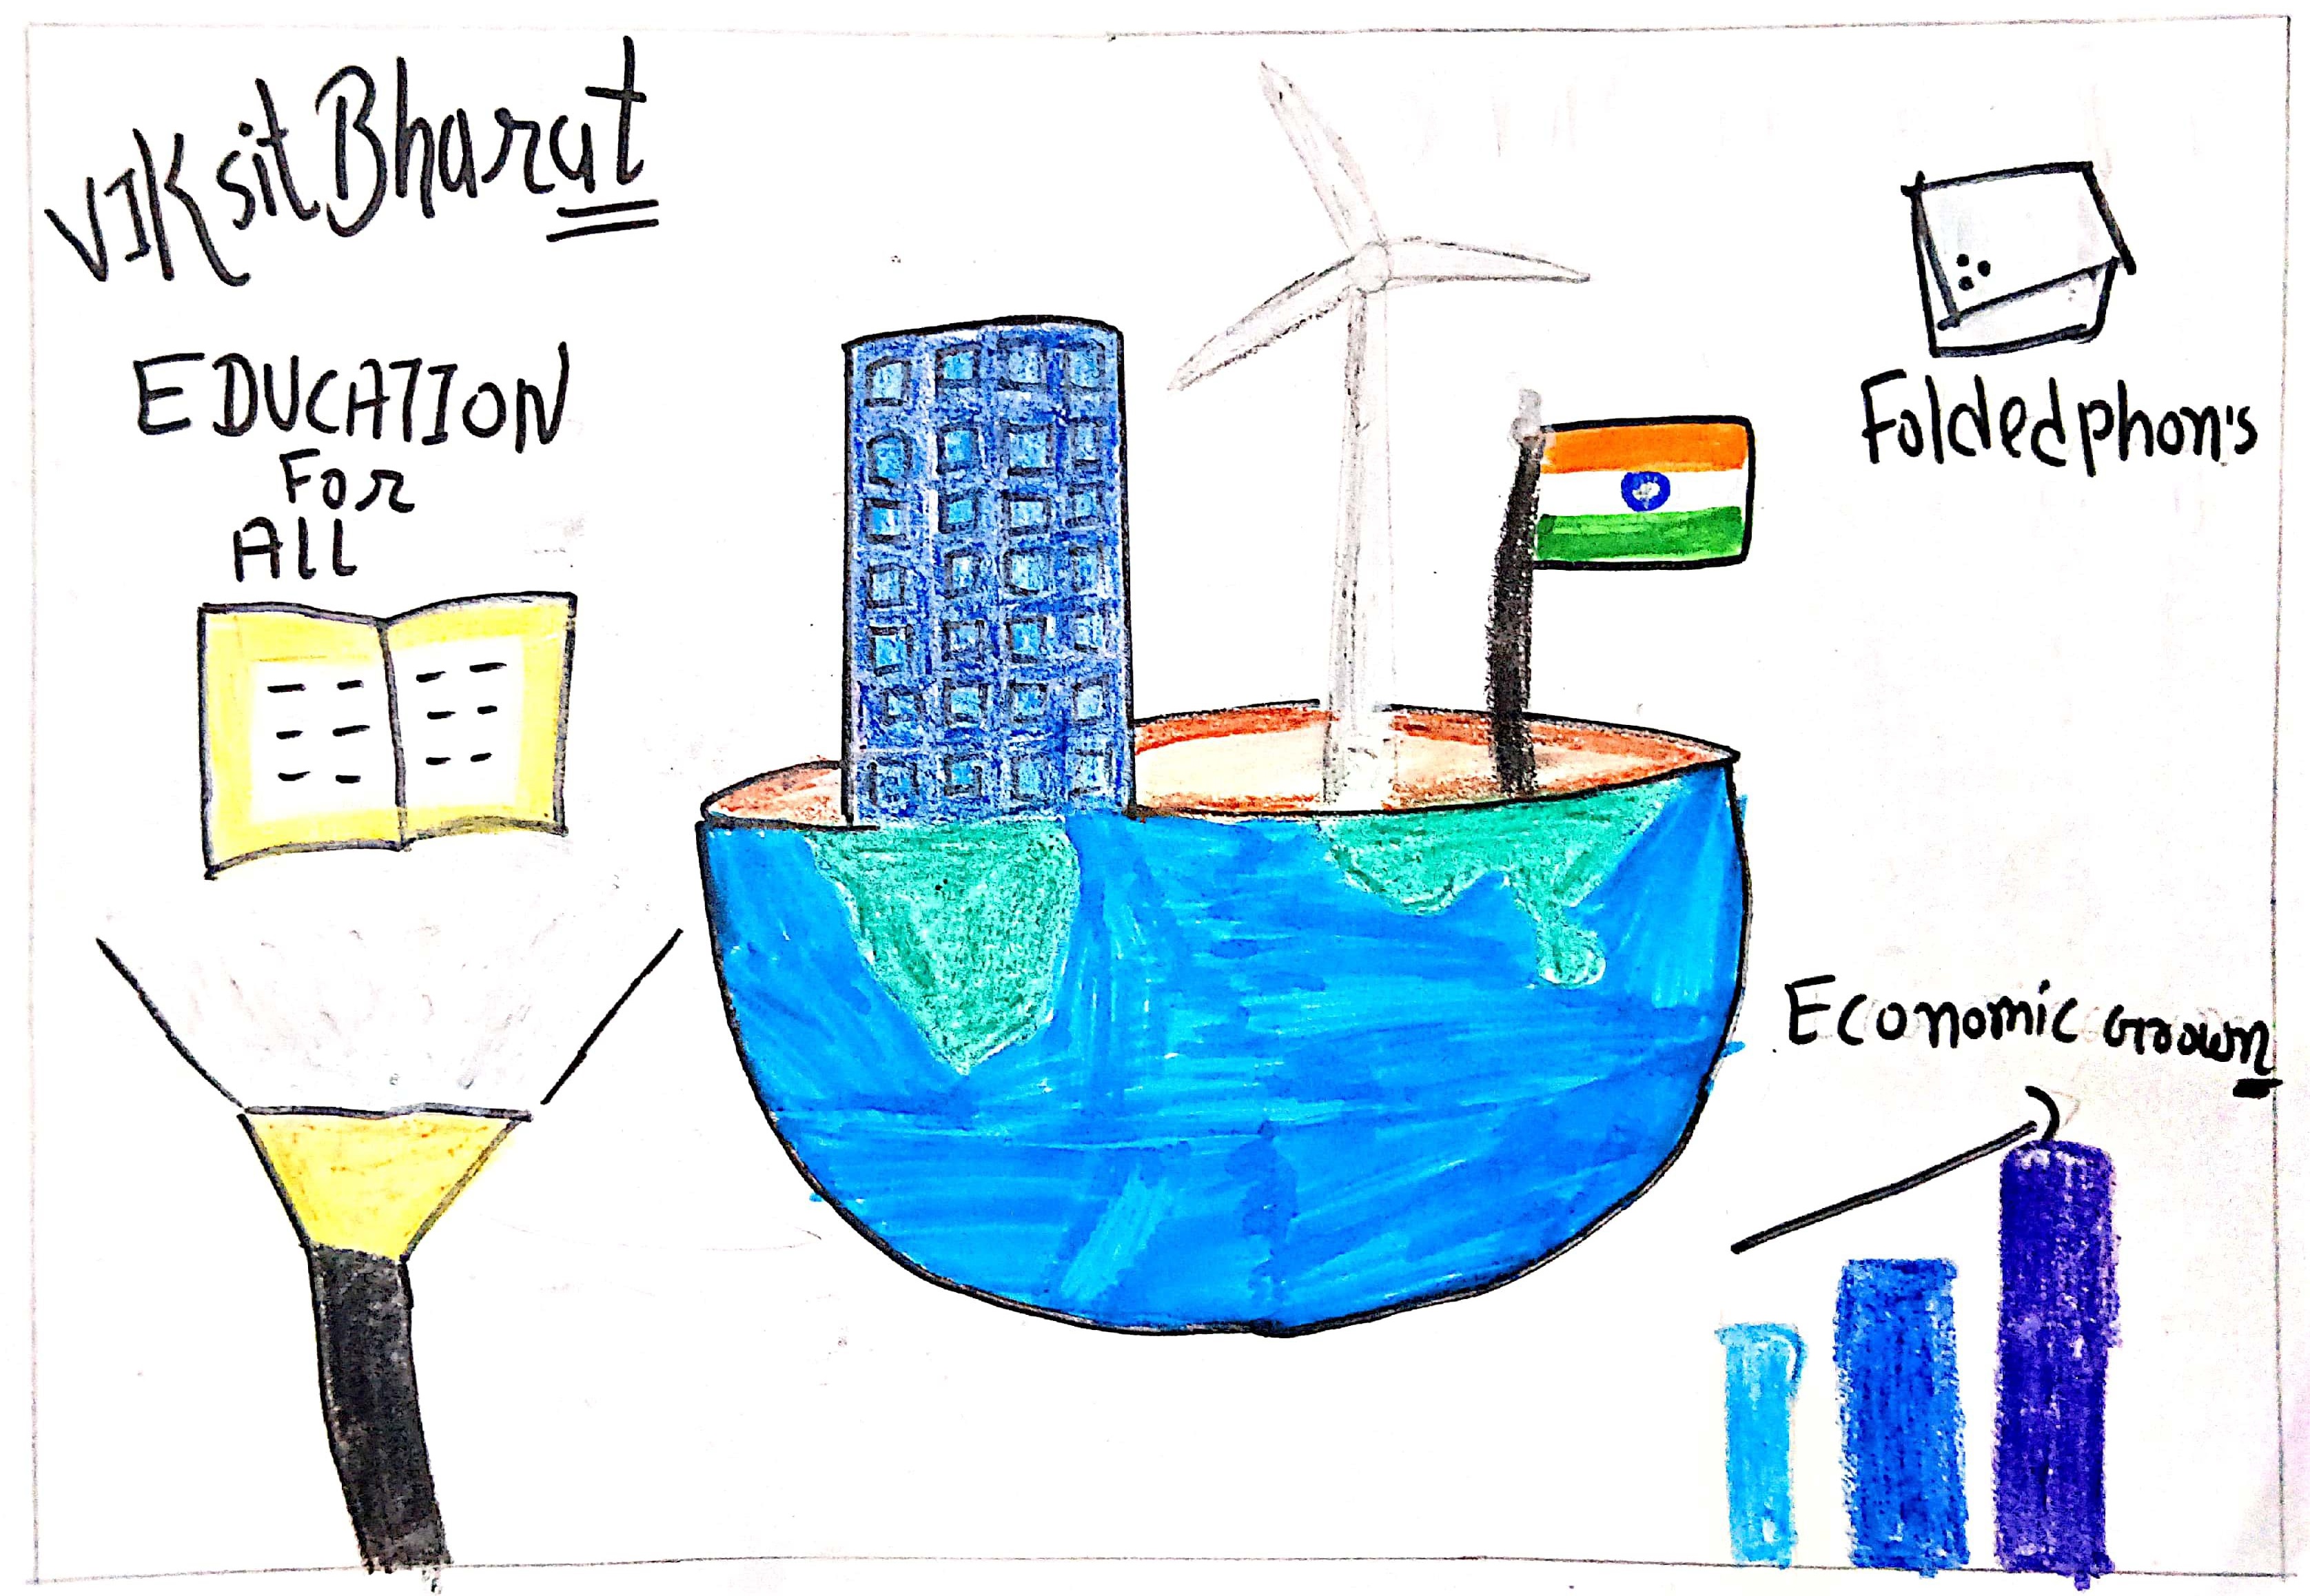 VIKsit Bharat
EDUCATION
For
All
Folded phon's
Economic Grown